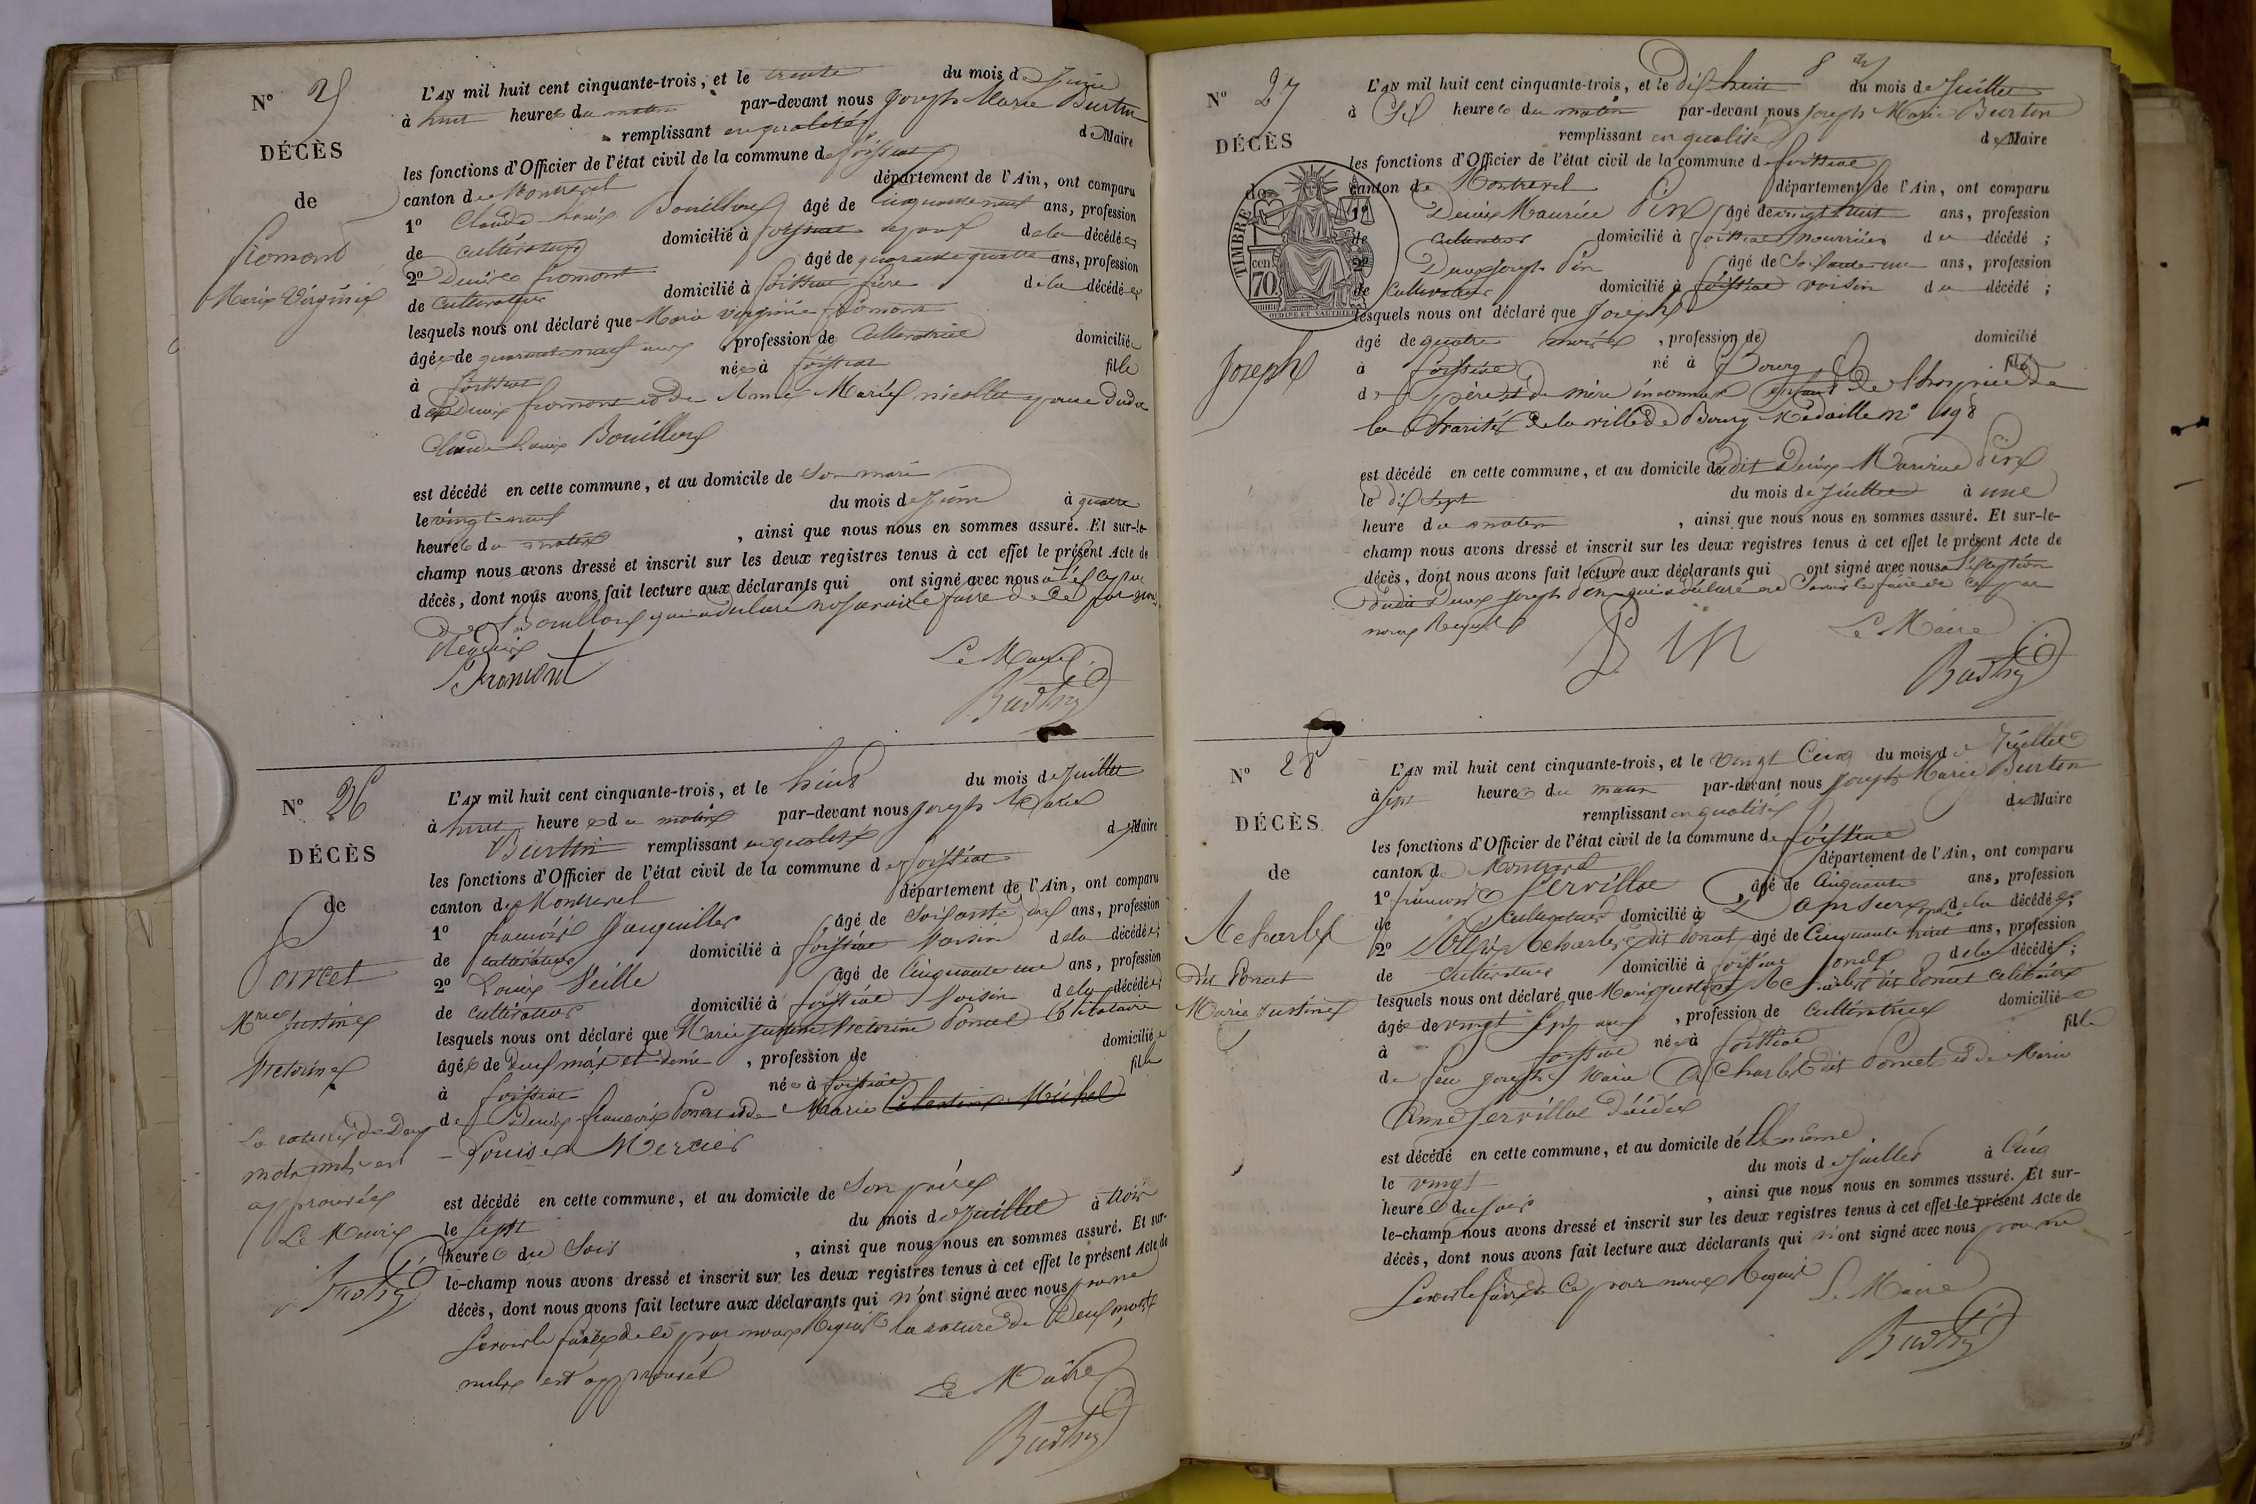 N° 25
DÉCÈS
de
Fromont
Marie Virginie
L'AN mil huit cent cinquante-trois, et le trente du mois de Juin
à huit heures du matin par-devant nous Joseph Marie Burtin
remplissant en qualité de Maire
les fonctions d'Officier de l'état civil de la commune de foissiat
canton de Montrevel département de l'Ain, ont comparu
1° Claude Louis Bouilloux âgé de cinquante neuf ans, profession
de cultivateur domicilié à foissiat époux de la décédée
2° Denis fromont âgé de quarante quatre ans, profession
de cultivateur domicilié à foissiat frère de la décédée
lesquels nous ont déclaré que Marie Virginie fromont
âgée de quarante neuf ans, profession de cultivatrice domiciliée
à foissiat née à foissiat fille
de Denis fromont et de Anne Marie nicollet épouse dudit
Claude Louis Bouilloux
est décédé en cette commune, et au domicile de Son mari
le vingt neuf du mois de Juin à quatre
heures du matin, ainsi que nous nous en sommes assuré. Et sur-le-
champ nous avons dressé et inscrit sur les deux registres tenus à cet effet le présent Acte de
décès, dont nous avons fait lecture aux déclarants qui ont signé avec nous à l'exception
de Bouilloux qui a déclaré ne savoir le faire de ce par nous
Requis
Fromont Le Maire
Burtin
N° 26
DÉCÈS
de
Poncet
Mie Justine
Victorine
La rature de Deux
mots nuls est
approuvée
Le Maire
Burtin
L'AN mil huit cent cinquante-trois, et le huit du mois de Juillet
à huit heures du matin par-devant nous Joseph Marie
Burtin remplissant en qualité de Maire
les fonctions d'Officier de l'état civil de la commune de foissiat
canton de Montrevel département de l'Ain, ont comparu
1° françois âgé de Soixante ans, profession
de cultivateur domicilié à foissiat Voisin de la décédée;
2° Louis Veille âgé de Cinquante un ans, profession
de cultivateur domicilié à foissiat Voisin de la décédée;
lesquels nous ont déclaré que Marie Justine Victorine Poncet Célibataire
âgée de Deux mois et demie, profession de domiciliée
à foissiat née à foissiat fille
de Denis françois Poncet et de Marie Célestine Michel
Louise Mercier
est décédé en cette commune, et au domicile de Son père
le Sept du mois de Juillet à trois
heures du Soir, ainsi que nous nous en sommes assuré. Et sur-
le-champ nous avons dressé et inscrit sur les deux registres tenus à cet effet le présent Acte de
décès, dont nous avons fait lecture aux déclarants qui n'ont signé avec nous pour ne
Savoir le faire de ce par nous Requis la rature de Deux mots
nuls est approuvée
Le Maire
Burtin
N° 27
DÉCÈS
de
Joseph
TIMBRE
70
L'AN mil huit cent cinquante-trois, et le dix huit du mois de Juillet
à Six heures du matin par-devant nous Joseph Marie Burtin
remplissant en qualité de Maire
les fonctions d'Officier de l'état civil de la commune de foissiat
canton de Montrevel département de l'Ain, ont comparu
1° Denis Maurice Pin âgé de vingt huit ans, profession
de cultivateur domicilié à foissiat nourricier du décédé;
2° Joseph Pin âgé de Soixante un ans, profession
de cultivateur domicilié à foissiat voisin du décédé;
lesquels nous ont déclaré que Joseph
âgé de quatre mois, profession de domicilié
à foissiat né à Bourg fils
de père et de mère inconnus enfant de l'hospice de
la Charité de la ville de Bourg Médaille n° 198
est décédé en cette commune, et au domicile dudit Denis Maurice Pin
le dix Sept du mois de Juillet à une
heure du matin, ainsi que nous nous en sommes assuré. Et sur-le-
champ nous avons dressé et inscrit sur les deux registres tenus à cet effet le présent Acte de
décès, dont nous avons fait lecture aux déclarants qui ont signé avec nous à l'exception
dudit Joseph Pin qui a déclaré ne Savoir le faire de ce par
nous Requis
Pin Le Maire
Burtin
N° 28
DÉCÈS
de
dit Poncet
Marie Justine
L'AN mil huit cent cinquante-trois, et le vingt Cinq du mois de Juillet
à Sept heures du matin par-devant nous Joseph Marie Burtin
remplissant en qualité de Maire
les fonctions d'Officier de l'état civil de la commune de foissiat
canton de Montrevel département de l'Ain, ont comparu
1° françois Servillat âgé de Cinquante ans, profession
de Cultivateur domicilié à de la décédée;
2° dit Poncet âgé de Cinquante huit ans, profession
de Cultivateur domicilié à foissiat oncle de la décédée;
lesquels nous ont déclaré que Marie Justine dit Poncet Célibataire
âgée de vingt Sept ans, profession de Cultivatrice domiciliée
à foissiat née à foissiat fille
de feu Joseph Marie dit Poncet et de Marie
Anne Servillat Décédés
est décédé en cette commune, et au domicile d'Elle même
le vingt du mois de Juillet à Cinq
heures du Soir, ainsi que nous nous en sommes assuré. Et sur-
le-champ nous avons dressé et inscrit sur les deux registres tenus à cet effet le présent Acte de
décès, dont nous avons fait lecture aux déclarants qui n'ont signé avec nous pour ne
Savoir le faire de Ce par nous Requis Le Maire
Burtin